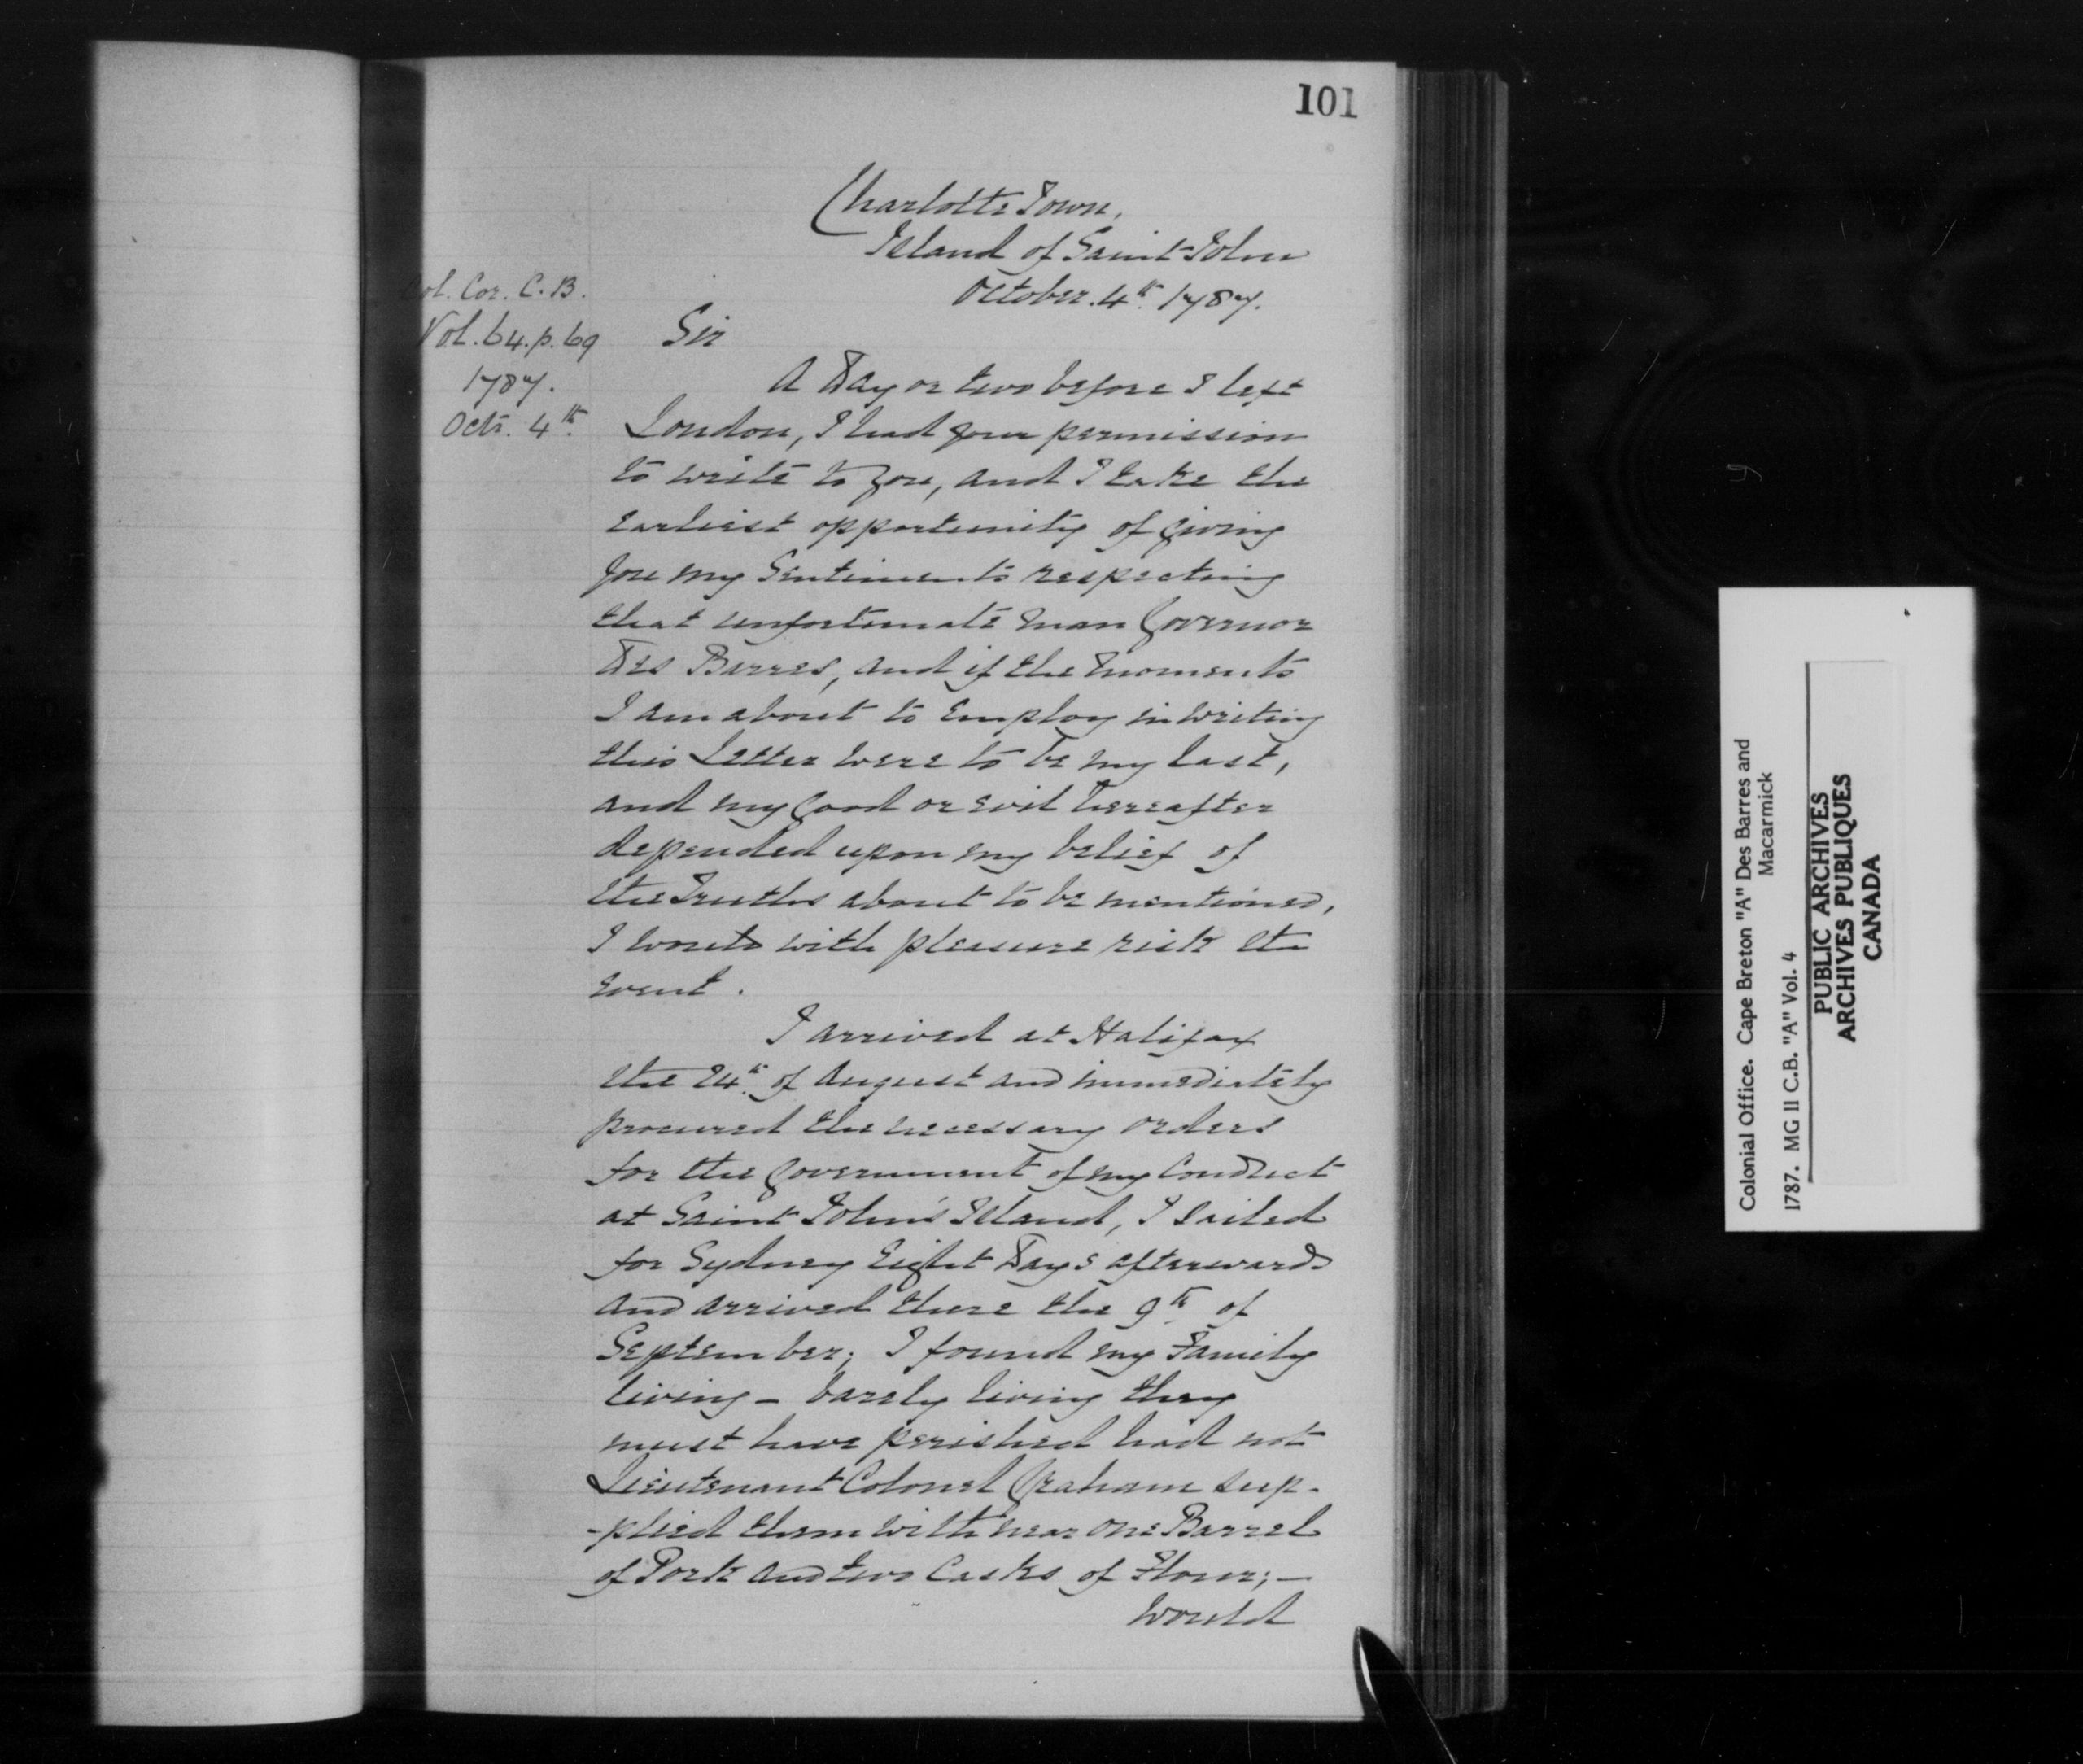 101
Charlotte Town,
Island of Saint John
October. 4th. 1787.
Col. Cor. C. B.
Vol. 64. p. 69
1787.
Octr. 4th.
Sir
A Day or two before I left
London, I had your permission
to write to you, and I take the
earliest opportunity of giving
you my Sentiments respecting
that unfortunate man Governor
Des Barres, and if the moments
I am about to Employ in writing
this Letter were to be my last,
and my Good or evil hereafter
depended upon my belief of
the Truths about to be mentioned,
I would with pleasure risk the
event.
I arrived at Halifax
the 24th. of August and immediately
procured the necessary orders
for the Government of my Conduct
at Saint John's Island, I sailed
for Sydney Eight Days afterwards
and arrived there the 9th. of
September; I found my Family
living - barely living they
must have perished had not
Lieutenant Colonel Graham sup-
-plied them with near one Barrel
of Pork and two Casks of Flour; —
would
Colonial Office. Cape Breton "A" Des Barres and
Macarmick
1787. MG II C.B. "A" Vol. 4
PUBLIC ARCHIVES
ARCHIVES PUBLIQUES
CANADA